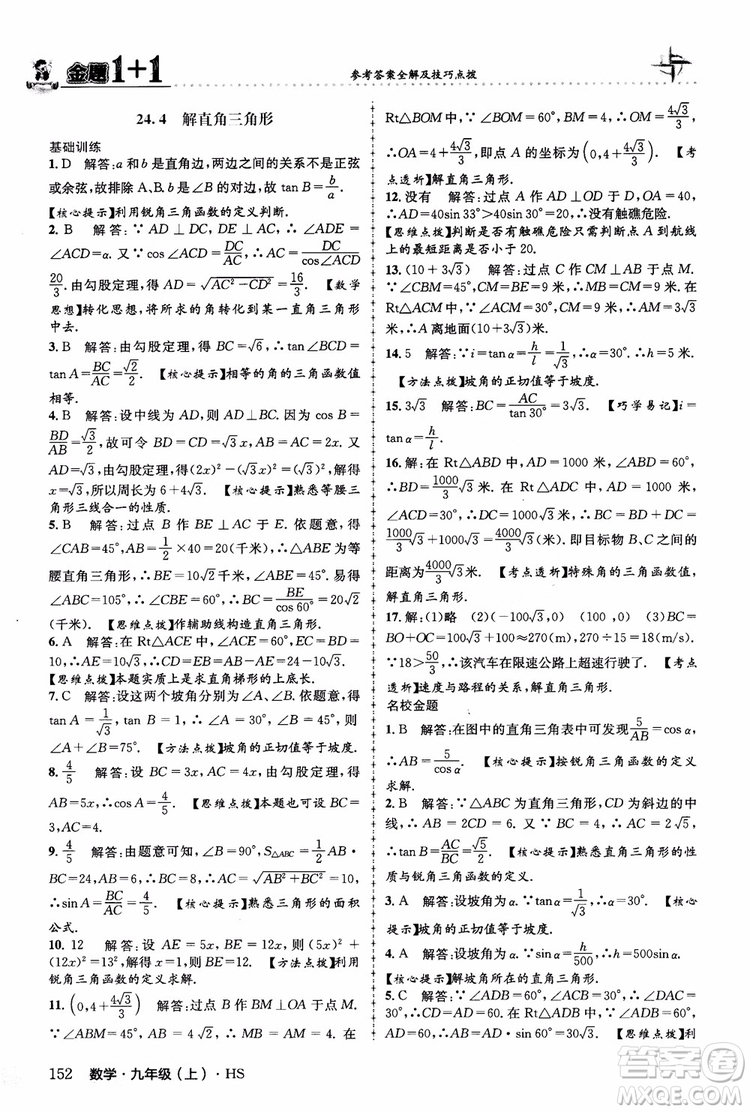 金题1+1
参考答案全解及技巧点拨
24.4 解直角三角形
基础训练
1. D 解答:a和b是直角边,两边之间的关系不是正弦
或余弦,故排除A、B,b是∠B的对边,故 tan B=b/a.
【核心提示】利用锐角三角函数的定义判断.
2. B 解答:∵ AD ⊥ DC, DE ⊥ AC, ∴ ∠CDE =
∠ACD. ∵ cos∠ACD = DC/AC, ∴ AC = DC/cos∠ACD =
20/3. 由勾股定理,得 AD = √(AC²-CD²) = 16/3. 【数学
思想】转化思想,将所求的角转化成与其相等的角
中去.
3. B 解答:由勾股定理,得 BC=√6, ∴ tan B=
tan A=BC/AC=√2/2. 【核心提示】相等的角三角函数值
相等.
4. B 解答:设中线为 AD,则 AD⊥BC. ∵ cos B =
BD/AB=√3/2,故可令 BD=√3x,则 AB=2x. 又
AD=√3,由勾股定理,得(2x)²-(√3x)²=(√3)²,
x=√3,故周长为 6+4√3. 【核心提示】熟悉等腰三
角形三线合一的性质.
5. B 解答:过点 B 作 BE ⊥AC 于 E. 依题意,得
∠CAB=45°,AB=1/2×40=20(千米). 易得△ABE 为等
腰直角三角形,∴AE=BE=10√2(千米). 又∠CBA=
∠ABC=105°,∴∠CBE=60°,∴BC=BE/cos 60°=20√2
(千米). 【思维点拨】作辅助线构造直角三角形.
6. A 解答:在 Rt△ACE 中,∵ ∠ACE = 60°,CE=
10√2,∴AE=10√6,∴DE=BC=10. 【思维点拨】
【思维点拨】本题实质上是求直角梯形的上底长.
7. C 解答:设这两个坡角分别为∠A、∠B. 依题意,得
tan A=1/√3,∴∠A=30°,tan B=1,∴∠B=45°,
∠A+∠B=75°. 【方法点拨】坡角的正切值等于坡度.
8. 4/5 解答:设 AC=4x,BC=3x,由勾股定理,得
AB=5x,∴cos A=4/5. 【思维点拨】本题也可设
AC=4.
9. 4/5 解答:由题意可知,∠B=90°,S△ABC=1/2AB·
BC,∴12=1/2×3·BC,AC=√(AB²+BC²)=
sin A=BC/AC=4/5. 【核心提示】熟悉三角形的面积
公式.
10. 12 解答:设 AE=5x,BE=12x,则(5x)²+
(12x)²=13²,∴x=1,故 BE=12. 【方法点拨】利用
锐角三角函数的定义求解.
11. (0,4+4√3/3) 解答:过点 B 作 BM⊥OA 于点
M. ∵ ∠BMA = 45°, ∴ MB = AM = 4. 在
Rt△BOM 中,∵ ∠BOM = 60°,BM = 4,∴ OM = 4√3/3,
∴OA=4+4√3/3,即点 A 的坐标为(0,4+4√3/3). 【考
点透析】解直角三角形.
12. 没有 解答:过点 A 作 AD⊥OD. ∵AO=40,
∴AD=40sin 33°>40sin 30°=20,∴没有触礁危险.
【思维点拨】判断是否有触礁危险只需判断点 A 到航线
上的最短距离是否小于 20.
13. (10+3√3) 解答:过点 C 作 CM⊥AB 于 M. ∵
∠CBM=45°,CM=BM=9,∴AM=1+3√3,
∴A 离地面(10+3√3)米.
14. 5 解答:∵i=tan α=h/l=1/2,∴h=5.
【方法点拨】坡角的正切值等于坡度.
15. 3√3 解答:BC=AC/tan 30°=3√3. 【巧学易记】i=
tan α=h/l.
16. 解:在 Rt△ABD 中,AD=1000 米,∠BAD=30°,
∴BD=1000/3 √3 米. 在 Rt△ADC 中,∵∠CAD=60°,
AD=1000 米,∴CD=1000√3 米. ∴BC=BD+CD=
4000/3 √3(米),即目标物 B、C 之间的距离为
4000/3 √3 米. 【考点透析】特殊角的三角函数值,
解直角三角形.
17. 解:(1)略 (2)(-100√3,0) (100,0) (3)
BO+OC=100√3+100≈270(m),270÷15=18(m/s).
∵18>50/3,∴该汽车在限速公路上超速行驶了. 【考点
透析】速度与路程的关系,解直角三角形.
名校金题
1. B 解答:在图中的直角三角表中可求得 5/AB=cos α,
∴ AB = 5/cos α. 【核心提示】按锐角三角函数的定义
求解.
2. B 解答:∵△ABC为直角三角形,CD 为斜边的中
线,∴ AB=2CD=6,又∵ AC=4,∴ BC=2√5,
∴tan B=AC/BC=2√5/5. 【核心提示】熟悉直角三角形的
性质.
3. A 解答:设坡角为 α. ∵ tan α=1/√3,∴ α=30°.
【核心提示】坡角的正切值等于坡度.
4. A 解答:设坡角为 α. ∵sin α=h/500,∴h=500sin α.
【核心提示】理解坡角所在的直角三角形.
5. C 解答:∵ ∠ADB = 60°,∠ADC = 90°,
AD=60,∴BD=60,∴AB=60√3. 【思维点拨】利
152 数学·九年级(上)·HS
答案